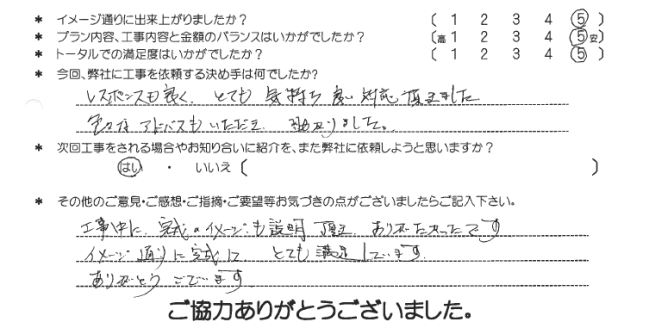 * イメージ通りに出来上がりましたか? ( 1 2 3 4 5 )
* プラン内容、工事内容と金額のバランスはいかがでしたか? (高 1 2 3 4 5 安)
* トータルでの満足度はいかがでしたか? ( 1 2 3 4 5 )
* 今回、弊社に工事を依頼する決め手は何でしたか?
レスポンスも良く、とても気持ち良い対応頂きました
色々なアドバスもいただき、助かりました。
* 次回工事をされる場合やお知り合いに紹介を、また弊社に依頼しようと思いますか?
はい ・ いいえ ( )
* その他のご意見・ご感想・ご指摘・ご要望等お気づきの点がございましたらご記入下さい。
工事中に、完成のイメージも説明頂き、ありがたかったです
イメージ通りに完成して とても満足しています。
ありがとうございます
ご協力ありがとうございました。